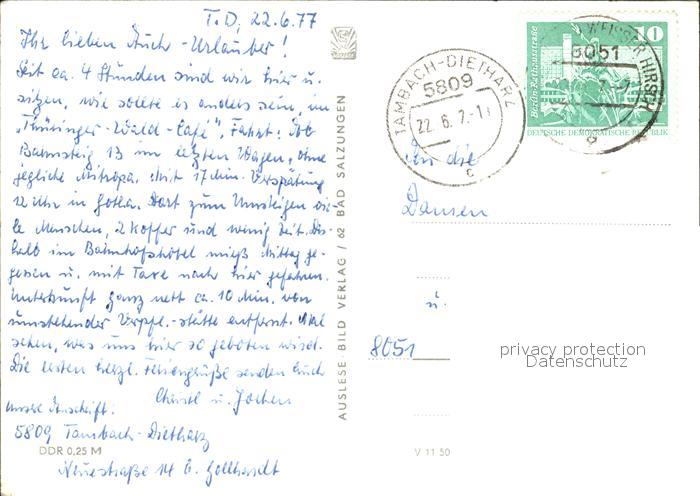 T.D., 22.6.77
Ihr lieben Auch-Urlauber!
Seit ca. 4 Stunden sind wir hier u.
sitzen, wie sollte es anders sein, im
"Thüringer-Wald-Café", Fahrt: Ab
Bahnsteig 13 im letzten Wagen, ohne
jegliche Mitropa. Mit 17 Min. Verspätung
12 Uhr in Gotha. Dort zum Umsteigen vie-
le Menschen, 2 Koffer und wenig Zeit. Des-
halb im Bahnhofshotel mieß Mittag ge-
gessen u. mit Taxe nach hier gefahren.
Unterkunft ganz nett ca. 10 Min. von
umstehender Verpfl.-stätte entfernt. Mal
sehen, was uns hier so geboten wird.
Die ersten herzl. Feriengrüße senden Euch
Christl u. Jochen
Unsre Anschrift:
5809 Tambach-Dietharz
Neuestraße 14 b.
DDR 0,25 M
AUSLESE-BILD VERLAG / 62 BAD SALZUNGEN
V 11 50
TAMBACH-DIETHARZ
5809
22. 6. 7
c
WEISSER HIRSCH
8051
Berlin, Rathausstraße
10
DEUTSCHE DEMOKRATISCHE REPUBLIK
An die
Damen
u.
8051
privacy protection
Datenschutz